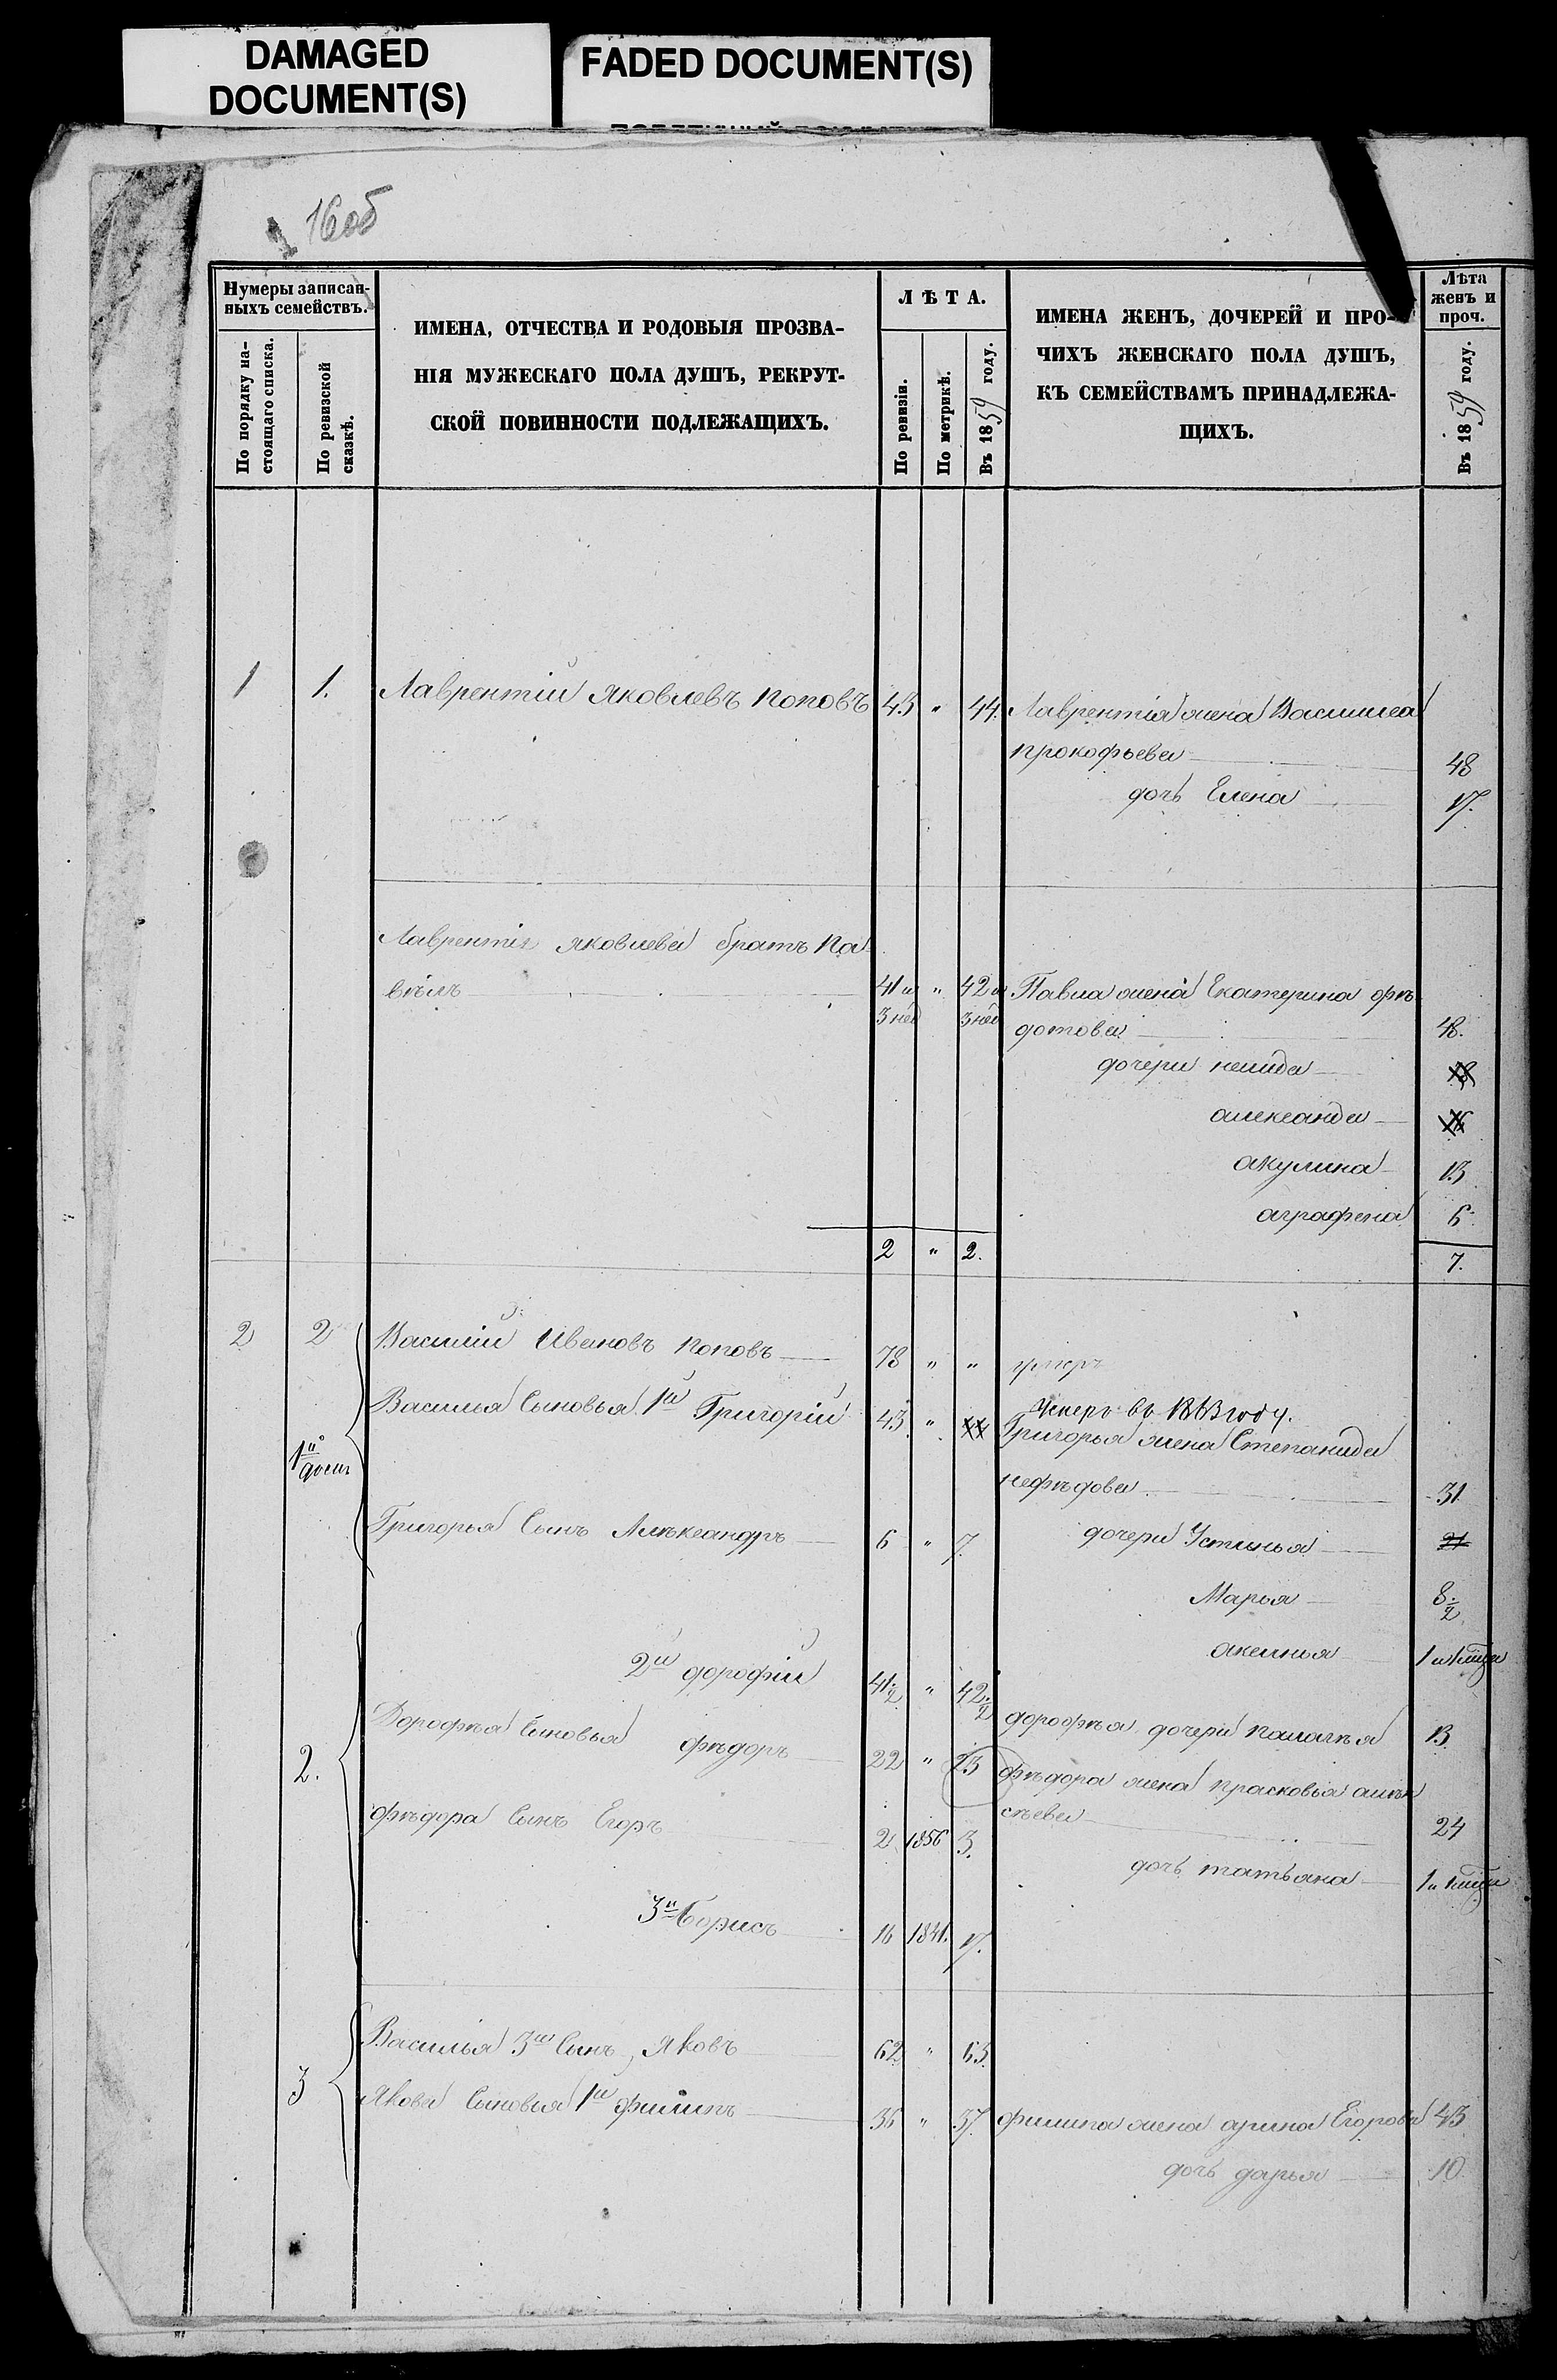 DAMAGED
DOCUMENT(S)
FADED DOCUMENT(S)
16об
Нумеры записан-
ныхъ семействъ.
По порядку на-
стоящаго списка.
По ревизской
сказкѣ.
ИМЕНА, ОТЧЕСТВА И РОДОВЫЯ ПРОЗВА-
НІЯ МУЖЕСКАГО ПОЛА ДУШЪ, РЕКРУТ-
СКОЙ ПОВИННОСТИ ПОДЛЕЖАЩИХЪ.
ЛѢТА.
По ревизіи.
По метрикѣ.
Въ 1859 году.
ИМЕНА ЖЕНЪ, ДОЧЕРЕЙ И ПРО-
ЧИХЪ ЖЕНСКАГО ПОЛА ДУШЪ,
КЪ СЕМЕЙСТВАМЪ ПРИНАДЛЕЖА-
ЩИХЪ.
Лѣта
женъ и
проч.
Въ 1859 году.
1 1. Лаврентій яковлевъ поповъ 43 " 44. Лаврентія жена Василиса
прокофьева 48
дочь Елена 17.
Лаврентія яковлева братъ Па-
вѣлъ 41 и " 42 и Павла жена Екатерина фѣ-
3 нед 3 нед дотова 48.
дочери
александа
акулина 13
аграфена 6
2 " 2. 7.
2 2 Василій Ивановъ поповъ 78 " " умеръ
Умеръ въ 1863 году.
Василья Сыновья 1й Григорій 43 " 44 Григорья жена Степанида
1й
нефѣдова 31
Григорья Сынъ Алѣксандръ 6 " 7. дочери Устинья 21
Марья 8 1/2
аксинья
2й дорофій 41 1/2 " 42 1/2
2. Дорофѣя Сыновья фѣдоръ 22 " 23 дорофѣя дочери палагѣя 13
фѣдора жена прасковья алѣк
сѣева 24
фѣдора Сынъ Егоръ 2 1856 3.
дочь татьяна
3й Борисъ 16 1841. 17.
Василья 3й Сынъ, яковъ 62 " 63
3 Якова Сыновья 1й филипъ 36 " 37 филипа жена арина Егорова 43
дочь дарья 10